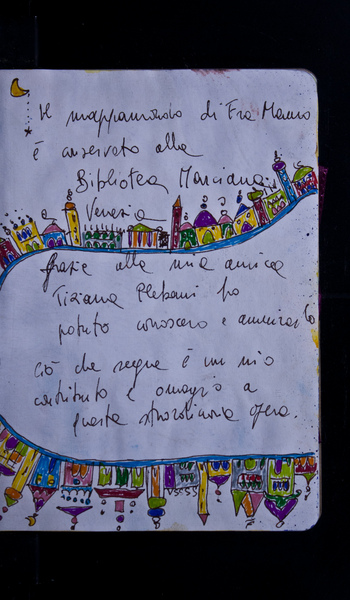 Il mappamondo di Fra Mauro
è conservato alla
Biblioteca Marciana,
Venezia
Grazie alla mia amica
Tiziana Plebani ho
potuto conoscerlo e ammirarlo
ciò che segue è un mio
contributo e omaggio a
questa straordinaria opera.